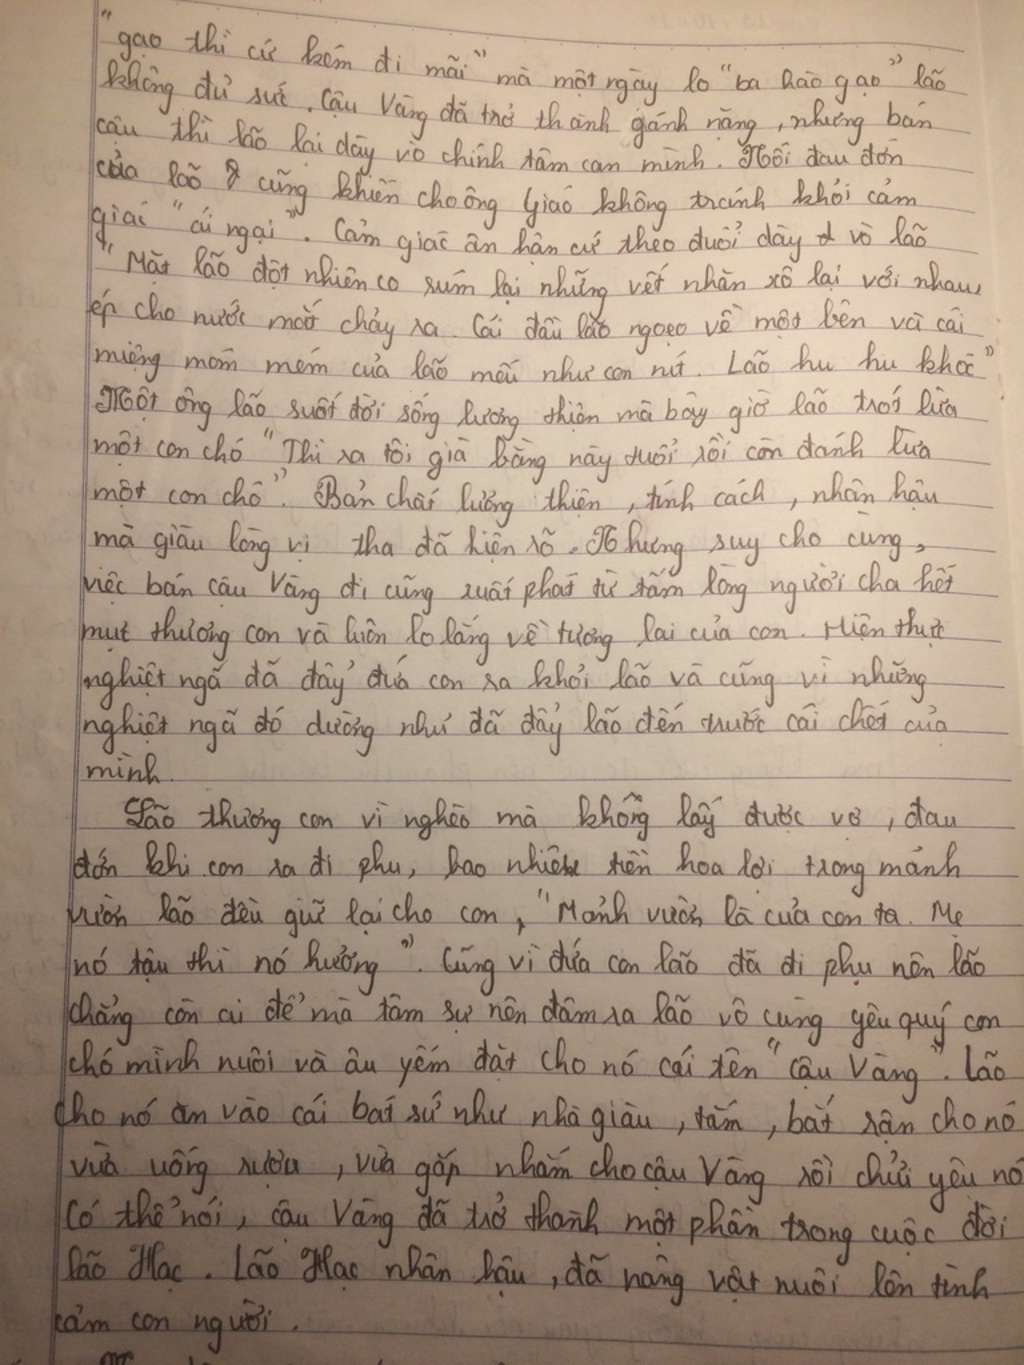 "gạo thì cứ kém đi mãi" mà một ngày lo "ba hào gạo" lão
không đủ sức. Cậu Vàng đã trở thành gánh nặng, nhưng bán
cậu thì lão lại dây vò chính tâm can mình. Nỗi đau đớn
của lão cũng khiến cho ông Giáo không tránh khỏi cảm
giác "ái ngại". Cảm giác ân hận cứ theo đuổi dây vò lão
"Mặt lão đột nhiên co rúm lại những vết nhăn xô lại với nhau,
ép cho nước mắt chảy ra. Cái đầu lão ngoẹo về một bên và cái
miệng móm mém của lão mếu như con nít. Lão hu hu khóc"
Một ông lão suốt đời sống lương thiện mà bây giờ lão trót lừa
một con chó "Thì ra tôi già bằng này tuổi rồi còn đánh lừa
một con chó". Bản chất lương thiện, tính cách, nhân hậu
mà giàu lòng vị tha đã hiện rõ. Nhưng suy cho cùng,
việc bán cậu Vàng đi cũng xuất phát từ tấm lòng người cha hết
mực thương con và luôn lo lắng về tương lai của con. Hiện thực
nghiệt ngã đã đẩy đứa con ra khỏi lão và cũng vì những
nghiệt ngã đó dường như đã đẩy lão đến trước cái chết của
mình.
Lão thương con vì nghèo mà không lấy được vợ, đau
đớn khi con ra đi phu, bao nhiêu tiền hoa lợi trong mảnh
vườn lão đều giữ lại cho con, "Mảnh vườn là của con ta. Mẹ
nó tậu thì nó hưởng". Cũng vì đứa con lão đã đi phu nên lão
chẳng còn ai để mà tâm sự nên đâm ra lão vô cùng yêu quý con
chó mình nuôi và âu yếm đặt cho nó cái tên "cậu Vàng". Lão
cho nó ăn vào cái bát sứ như nhà giàu, tắm, bắt rận cho nó
vừa uống rượu, vừa gắp nhắm cho cậu Vàng rồi chửi yêu nó
Có thể nói, cậu Vàng đã trở thành một phần trong cuộc đời
lão Hạc. Lão Hạc nhân hậu, đã nâng vật nuôi lên tình
cảm con người.